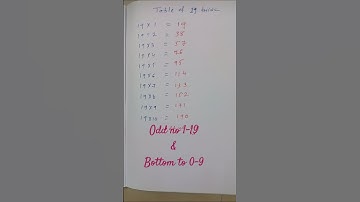 Table of 19
19 x 1 = 19
19 x 2 = 38
19 x 3 = 57
19 x 4 = 76
19 x 5 = 95
19 x 6 = 114
19 x 7 = 133
19 x 8 = 152
19 x 9 = 171
19 x 10 = 190
Odd no 1-19
&
Bottom to 0-9